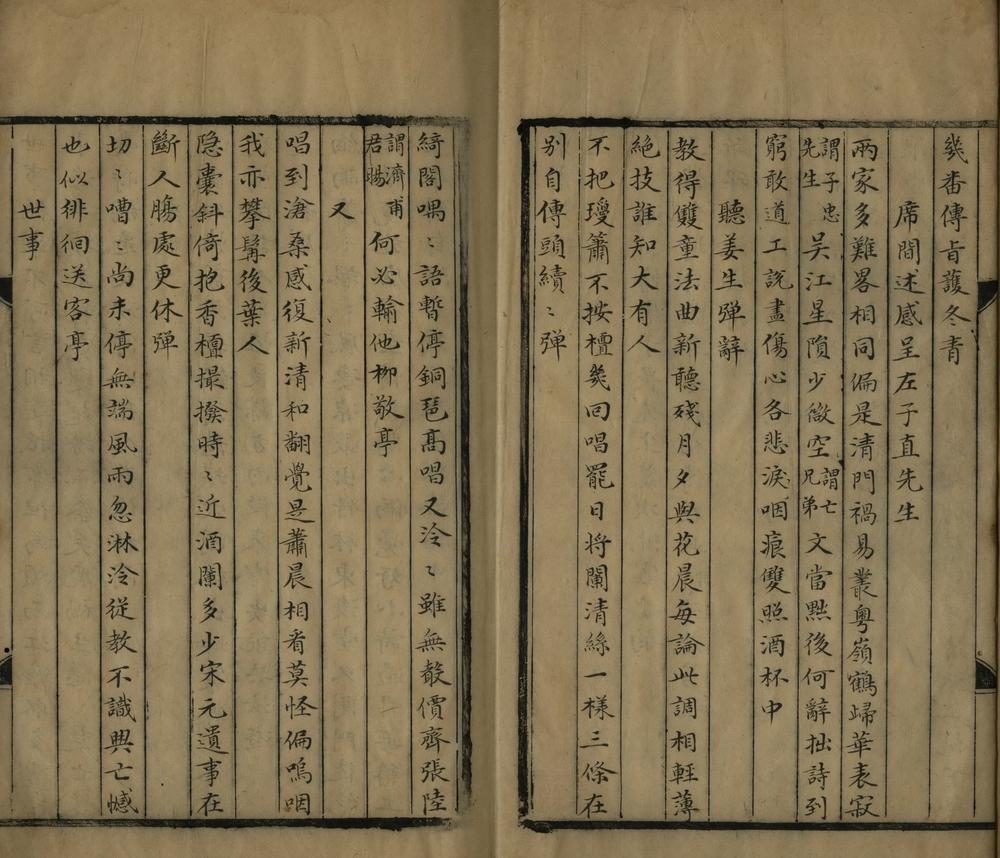 幾番傳旨護冬青
席間述感呈左子直先生
兩家多難畧相同偏是清門禍易叢粤嶺鶴歸華表寂
謂子忠先生吳江星隕少微空謂亡兄弟文當㸃後何辭拙詩到
窮敢道工說盡傷心各悲淚咽痕雙照酒杯中
聽姜生彈辭
教得雙童法曲新聽殘月夕與花晨每論此調相輕薄
絶技誰知大有人
不把瓊簫不按檀幾回唱罷日将闌清絲一様三條在
别自傳頭續〻彈
綺閣喁〻語暫停銅琶髙唱又泠〻雖無聲價齊張陸
謂濟甫君暘何必輸他柳敬亭
又
唱到滄桑感復新清和翻覺是蕭晨相看莫怪偏嗚咽
我亦攀髯後葉人
隐囊斜倚抱香檀撮撥時〻近酒闌多少宋元遺事在
斷人膓處更休彈
切〻嘈〻尚未停無端風雨忽淋泠從教不識興亡憾
也似徘徊送客亭
世事